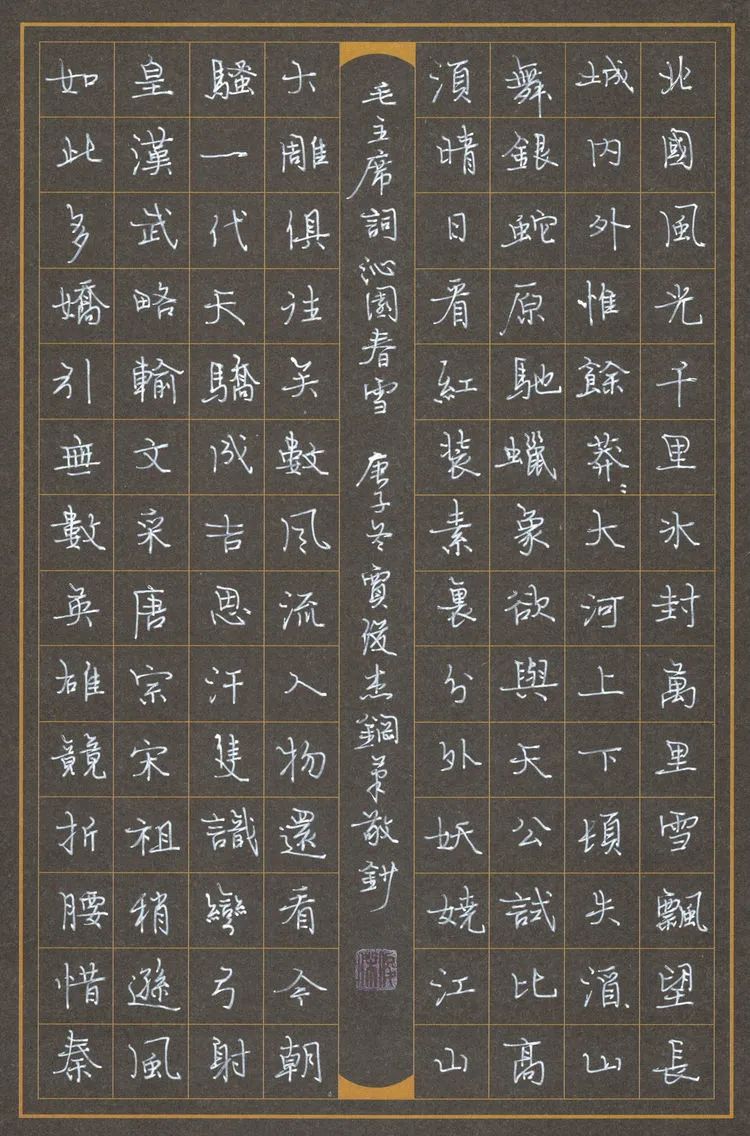 北國風光千里冰封萬里雪飄望長
城内外惟餘莽〻大河上下頓失滔〻山
舞銀蛇原馳蠟象欲與天公試比高
須晴日看紅裝素裹分外妖嬈江山
毛主席詞沁園春雪 庚子冬俊杰鋼筆敬鈔
如此多嬌引無數英雄競折腰惜秦
皇漢武略輸文采唐宗宋祖稍遜風
騷一代天驕成吉思汗隻識彎弓射
大雕俱往矣數風流人物還看今朝